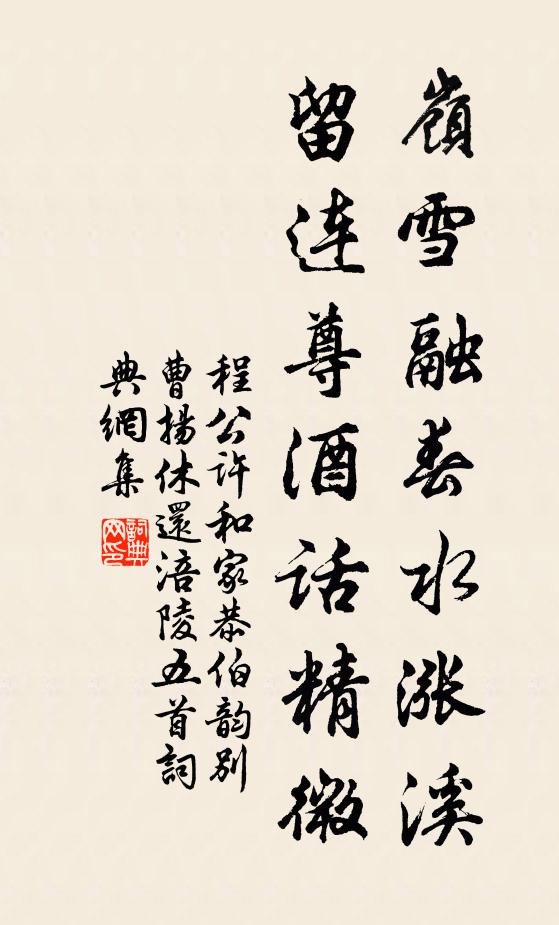 嶺雪融春水漲溪
留连尊酒话精微
程公许和家恭伯韵别
曹揚休還涪陵五首詞
典網集
詞典网印